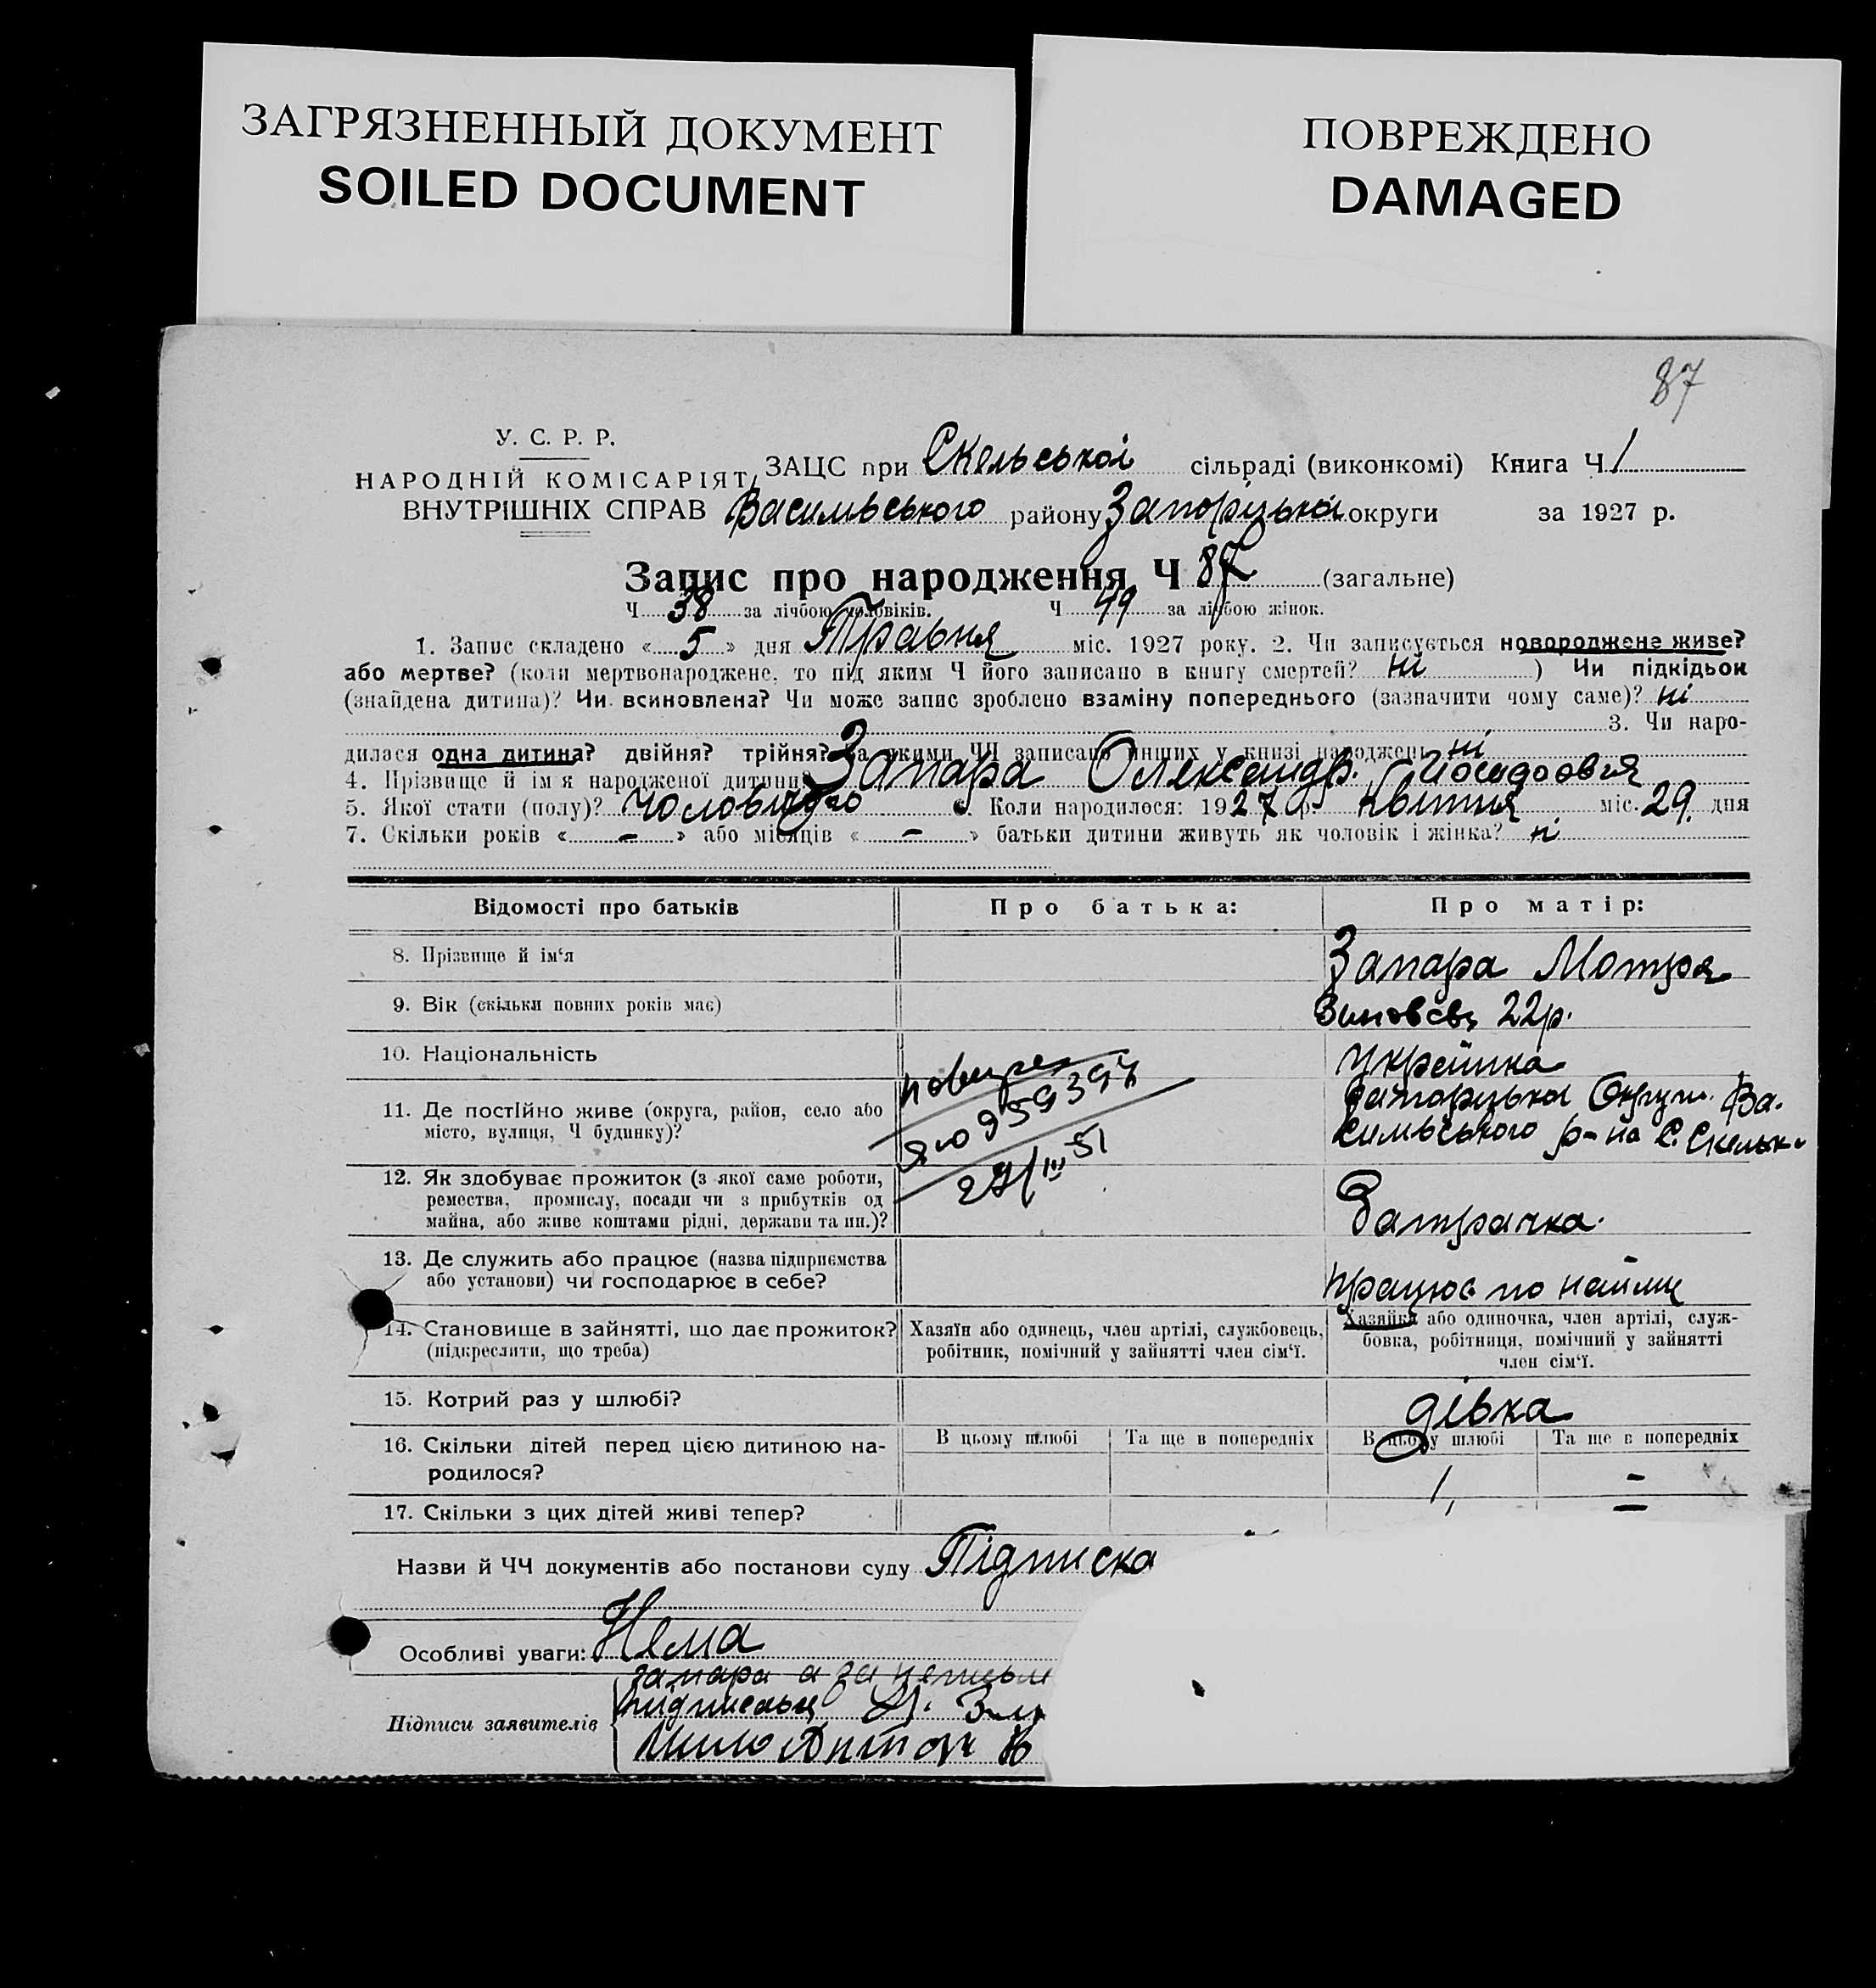 ЗАГРЯЗНЕННЫЙ ДОКУМЕНТ
SOILED DOCUMENT
ПОВРЕЖДЕНО
DAMAGED
87
У. С. Р. Р.
НАРОДНІЙ КОМІСАРІЯТ
ВНУТРІШНІХ СПРАВ
ЗАЦС при Скельської сільраді (виконкомі) Книга Ч 1
Васильвського району Запоріцької округи за 1927 р.
Запис про народження Ч 87 (загальне)
Ч 38 за лічбою чоловіків. Ч 49 за лічбою жінок.
1. Запис складено « 5 » дня Травня міс. 1927 року. 2. Чи записується новороджене живе?
або мертве? (коли мертвонароджене, то під яким Ч його записано в книгу смертей? ні ) Чи підкідьок
(знайдена дитина)? Чи всиновлена? Чи може запис зроблено взаміну попереднього (зазначити чому саме)? ні
3. Чи наро-
дилася одна дитина? двійня? трійня? За якими ЧЧ записано инших у книзі народжень ні
4. Прізвище й ім'я народженої дитини? Запара Олександр.
5. Якої стати (полу)? Чоловічого 6. Коли народилося: 1927 р. Квітня міс. 29. дня
7. Скільки років « – » або місяців « – » батьки дитини живуть як чоловік і жінка? ні
Відомості про батьків
Про батька:
Про матір:
8. Прізвище й ім'я
Запара Мотря
9. Вік (скільки повних років має)
22 р.
10. Національність
Українка
11. Де постійно живе (округа, район, село або
місто, вулиця, Ч будинку)?
Запоріцької Округи Ва-
сильвського р-на С. Скельк
959397
27/III 51
12. Як здобуває прожиток (з якої саме роботи,
ремества, промислу, посади чи з прибутків од
майна, або живе коштами рідні, держави та ин.)?
Батрачка.
13. Де служить або працює (назва підприємства
або установи) чи господарює в себе?
працює по найму
14. Становище в зайнятті, що дає прожиток?
(підкреслити, що треба)
Хазяїн або одинець, член артілі, службовець,
робітник, помічний у зайнятті член сім'ї.
Хазяйка або одиночка, член артілі, служ-
бовка, робітниця, помічний у зайнятті
член сім'ї.
15. Котрий раз у шлюбі?
дівка
16. Скільки дітей перед цією дитиною на-
родилося?
В цьому шлюбі Та ще в попередніх
В цьому шлюбі Та ще в попередніх
1, –
17. Скільки з цих дітей живі тепер?
Назви й ЧЧ документів або постанови суду Підписка
Особливі уваги: Нема
запара а за
Підписи заявителів